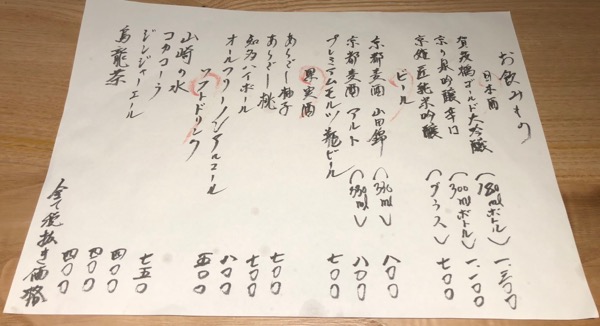 お飲みもの
日本酒
賀茂鶴ゴールド大吟醸（180mlボトル）一、三〇〇
京の泉吟醸辛口（300mlボトル）一、一〇〇
京姫匠純米吟醸（グラス）七〇〇
ビール
京都麦酒 山田錦（330ml）八〇〇
京都麦酒 アルト（330ml）八〇〇
プレミアムモルツ瓶ビール 七〇〇
果実酒
あらごし柚子 七〇〇
あらごし桃 七〇〇
知多ハイボール 八〇〇
オールフリーノンアルコール 五〇〇
ソフトドリンク
山崎の水 七五〇
コカコーラ 四〇〇
ジンジャーエール 四〇〇
烏龍茶 四〇〇
全て税抜き価格